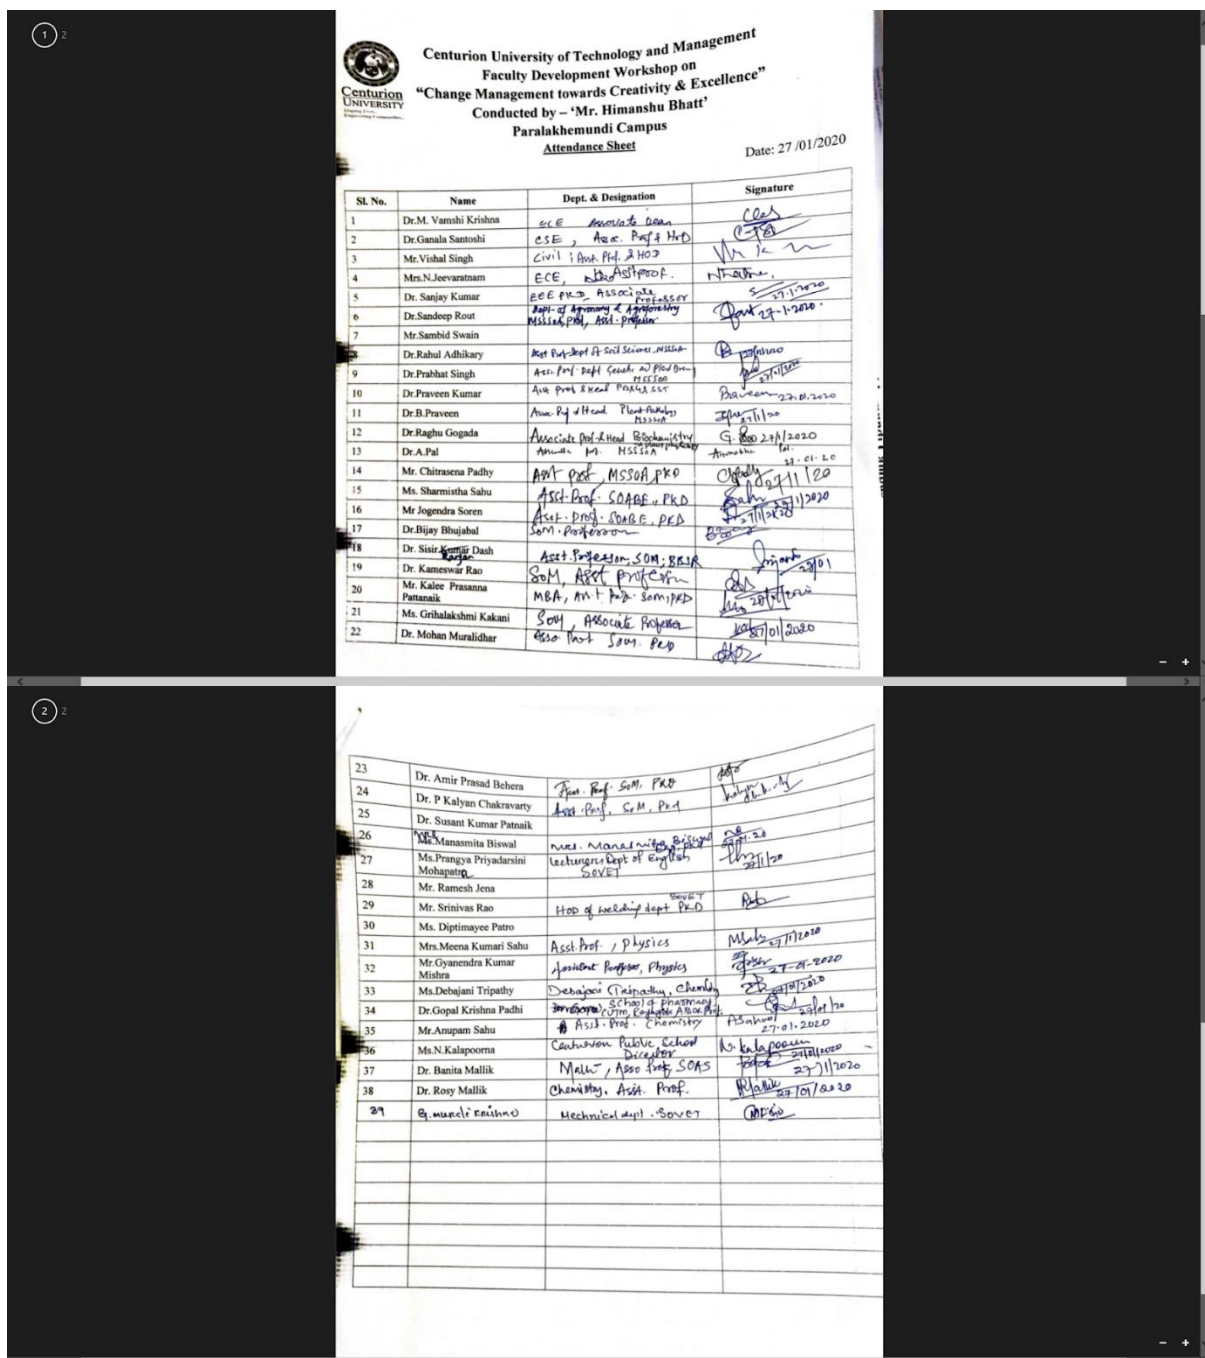 1 2
Centurion
UNIVERSITY
Shaping Lives...
Empowering Communities...
Centurion University of Technology and Management
Faculty Development Workshop on
“Change Management towards Creativity & Excellence”
Conducted by – ‘Mr. Himanshu Bhatt’
Paralakhemundi Campus
Attendance Sheet
Date: 27 /01/2020
Sl. No. Name Dept. & Designation Signature
1 Dr.M. Vamshi Krishna ECE Associate Dean
2 Dr.Ganala Santoshi CSE, Asso. Prof & HoD
3 Mr.Vishal Singh Civil ; Asst. Prof. & HOD
4 Mrs.N.Jeevaratnam ECE, Asstprof.
5 Dr. Sanjay Kumar EEE PKD, Associate Professor 27.1.2020
6 Dr.Sandeep Rout Dept. of Agronomy & Agroforestry MSSSoA, PKD, Asst. Professor 27-1-2020.
7 Mr.Sambid Swain
8 Dr.Rahul Adhikary Asst Prof. Dept of Soil Science, MSSSoA
9 Dr.Prabhat Singh Asst. Prof. Dept MSSSOA 27/01/2020
10 Dr.Praveen Kumar Asst Prof & Head Praveen 27.01.2020
11 Dr.B.Praveen Asso. Prof & Head Plant Pathology MSSSoA 27/1/20
12 Dr.Raghu Gogada Associate Prof & Head Biochemistry G. 27/1/2020
13 Dr.A.Pal MSSSoA Pal. 27.01.20
14 Mr. Chitrasena Padhy Asst prof, MSSOA, PKD 27/1/20
15 Ms. Sharmistha Sahu Asst. Prof. SOABE, PKD 27/1/2020
16 Mr Jogendra Soren Asst. Prof. SOABE, PKD 27/1/2020
17 Dr.Bijay Bhujabal SoM. Professor
18 Dr. Sisir Kumar Dash Ranjan Asst. Professor, SOM, BBSR 27/01
19 Dr. Kameswar Rao SoM, Asst professor
20 Mr. Kalee Prasanna Pattanaik MBA, Asst. Prof. SoM, PKD
21 Ms. Grihalakshmi Kakani SoM, Associate Professor 27/01/2020
22 Dr. Mohan Muralidhar Asso. Prof SoM. PKD
2 2
23 Dr. Amir Prasad Behera Asst. Prof. SoM, PKD
24 Dr. P Kalyan Chakravarty Asst. Prof, SoM, PKd
25 Dr. Susant Kumar Patnaik
26 Mrs Ms.Manasmita Biswal Mrs. Manasmita Biswal
27 Ms.Prangya Priyadarsini Mohapatra Lecturer, Dept of English SOVET 27/1/20
28 Mr. Ramesh Jena
29 Mr. Srinivas Rao HOD of welding dept SOVET PKD
30 Ms. Diptimayee Patro
31 Mrs.Meena Kumari Sahu Asst. Prof., Physics 27/1/2020
32 Mr.Gyanendra Kumar Mishra Assistant Professor, Physics 27-01-2020
33 Ms.Debajani Tripathy Debajani Tripathy, Chemistry
34 Dr.Gopal Krishna Padhi School of Pharmacy, CUTM, Rayagada, Assoc. Prof. 27/01/20
35 Mr.Anupam Sahu Asst. Prof. Chemistry ASahu 27.01.2020
36 Ms.N.Kalapoorna Centurion Public School Director N. Kalapoorna 27/01/2020
37 Dr. Banita Mallik Math, Asso Prof, SOAS 27/1/2020
38 Dr. Rosy Mallik Chemistry, Asst. Prof. RMallik 27/01/2020
39 G. Murali Krishna Mechnical dept. SOVET